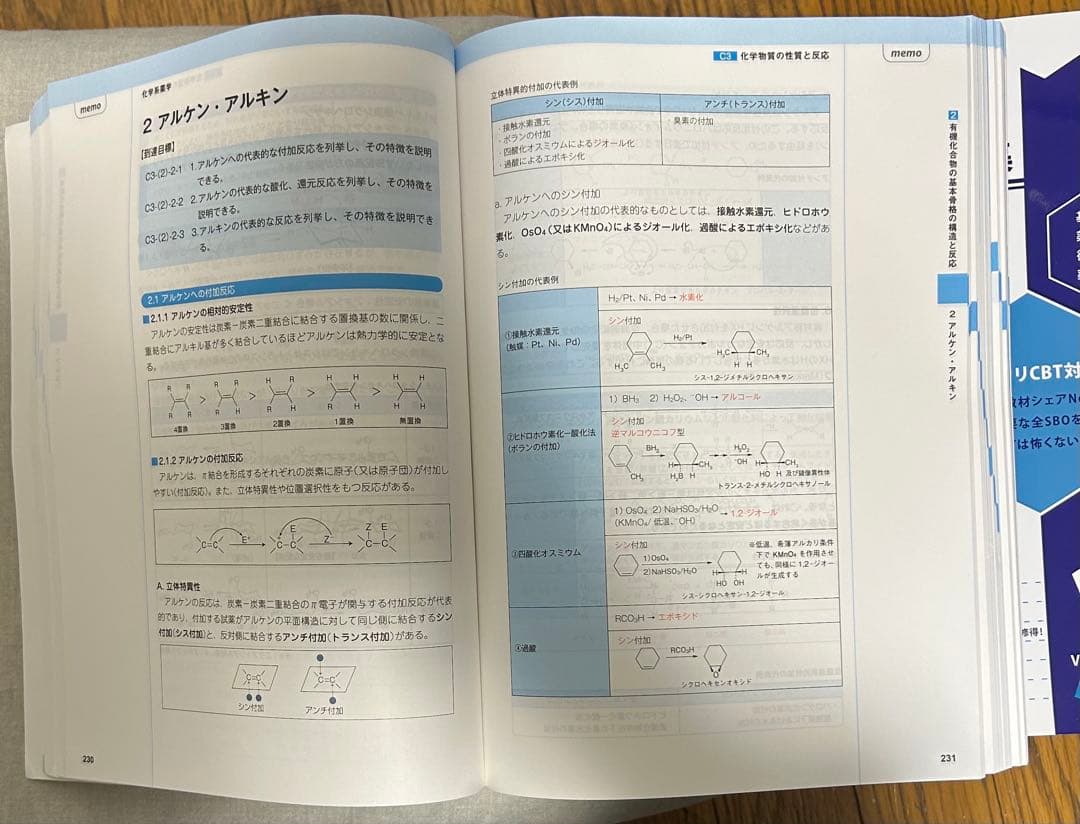 memo
化学系薬学
2 アルケン・アルキン
【到達目標】
C3-(2)-2-1 1.アルケンへの代表的な付加反応を列挙し、その特徴を説明
できる。
C3-(2)-2-2 2.アルケンの代表的な酸化、還元反応を列挙し、その特徴を
説明できる。
C3-(2)-2-3 3.アルキンの代表的な反応を列挙し、その特徴を説明でき
る。
2.1 アルケンへの付加反応
■2.1.1 アルケンの相対的安定性
アルケンの安定性は炭素-炭素二重結合に結合する置換基の数に関係し、二
重結合にアルキル基が多く結合しているほどアルケンは熱力学的に安定とな
る。
R R R R H R H R H H
> > > >
R R R H R H H H H H
4置換 3置換 2置換 1置換 無置換
■2.1.2 アルケンの付加反応
アルケンは、π結合を形成するそれぞれの炭素に原子(又は原子団)が付加し
やすい(付加反応)。また、立体特異性や位置選択性をもつ反応がある。
E Z E
C=C E⁺ C-C Z⁻ C-C
A. 立体特異性
アルケンの反応は、炭素-炭素二重結合のπ電子が関与する付加反応が代表
的であり、付加する試薬がアルケンの平面構造に対して同じ側に結合するシン
付加(シス付加)と、反対側に結合するアンチ付加(トランス付加)がある。
C=C C=C
シン付加 アンチ付加
230
C3 化学物質の性質と反応
memo
立体特異的付加の代表例
シン(シス)付加 アンチ(トランス)付加
・接触水素還元 ・臭素の付加
・ボランの付加
・四酸化オスミウムによるジオール化
・過酸によるエポキシ化
a. アルケンへのシン付加
アルケンへのシン付加の代表的なものとしては、接触水素還元、ヒドロホウ
素化、OsO₄(又はKMnO₄)によるジオール化、過酸によるエポキシ化などがあ
る。
シン付加の代表例
①接触水素還元
(触媒:Pt、Ni、Pd)
H₂/Pt、Ni、Pd → 水素化
シン付加
H₂/Pt
H₃C CH₃ H₃C CH₃
H H
シス-1,2-ジメチルシクロヘキサン
②ヒドロホウ素化-酸化法
(ボランの付加)
1) BH₃ 2) H₂O₂、⁻OH → アルコール
シン付加
逆マルコウニコフ型
BH₃ H₂O₂
⁻OH
CH₃ H CH₃ H CH₃
H₂B H HO H 及び鏡像異性体
トランス-2-メチルシクロヘキサノール
③四酸化オスミウム
1) OsO₄ 2) NaHSO₃/H₂O → 1,2-ジオール
(KMnO₄/ 低温、⁻OH)
シン付加
1)OsO₄
2)NaHSO₃/H₂O
H H
HO OH
※低温、希薄アルカリ条件
下で KMnO₄ を作用させ
ても、同様に 1,2-ジオー
ルが生成する
シス-シクロヘキサン-1,2-ジオール
④過酸
RCO₃H → エポキシド
シン付加
RCO₃H
O
シクロヘキセンオキシド
231
2 有機化合物の基本骨格の構造と反応
2 アルケン・アルキン
リCBT対
教材シェアNo
全SBOを
は怖くない
修得!
V